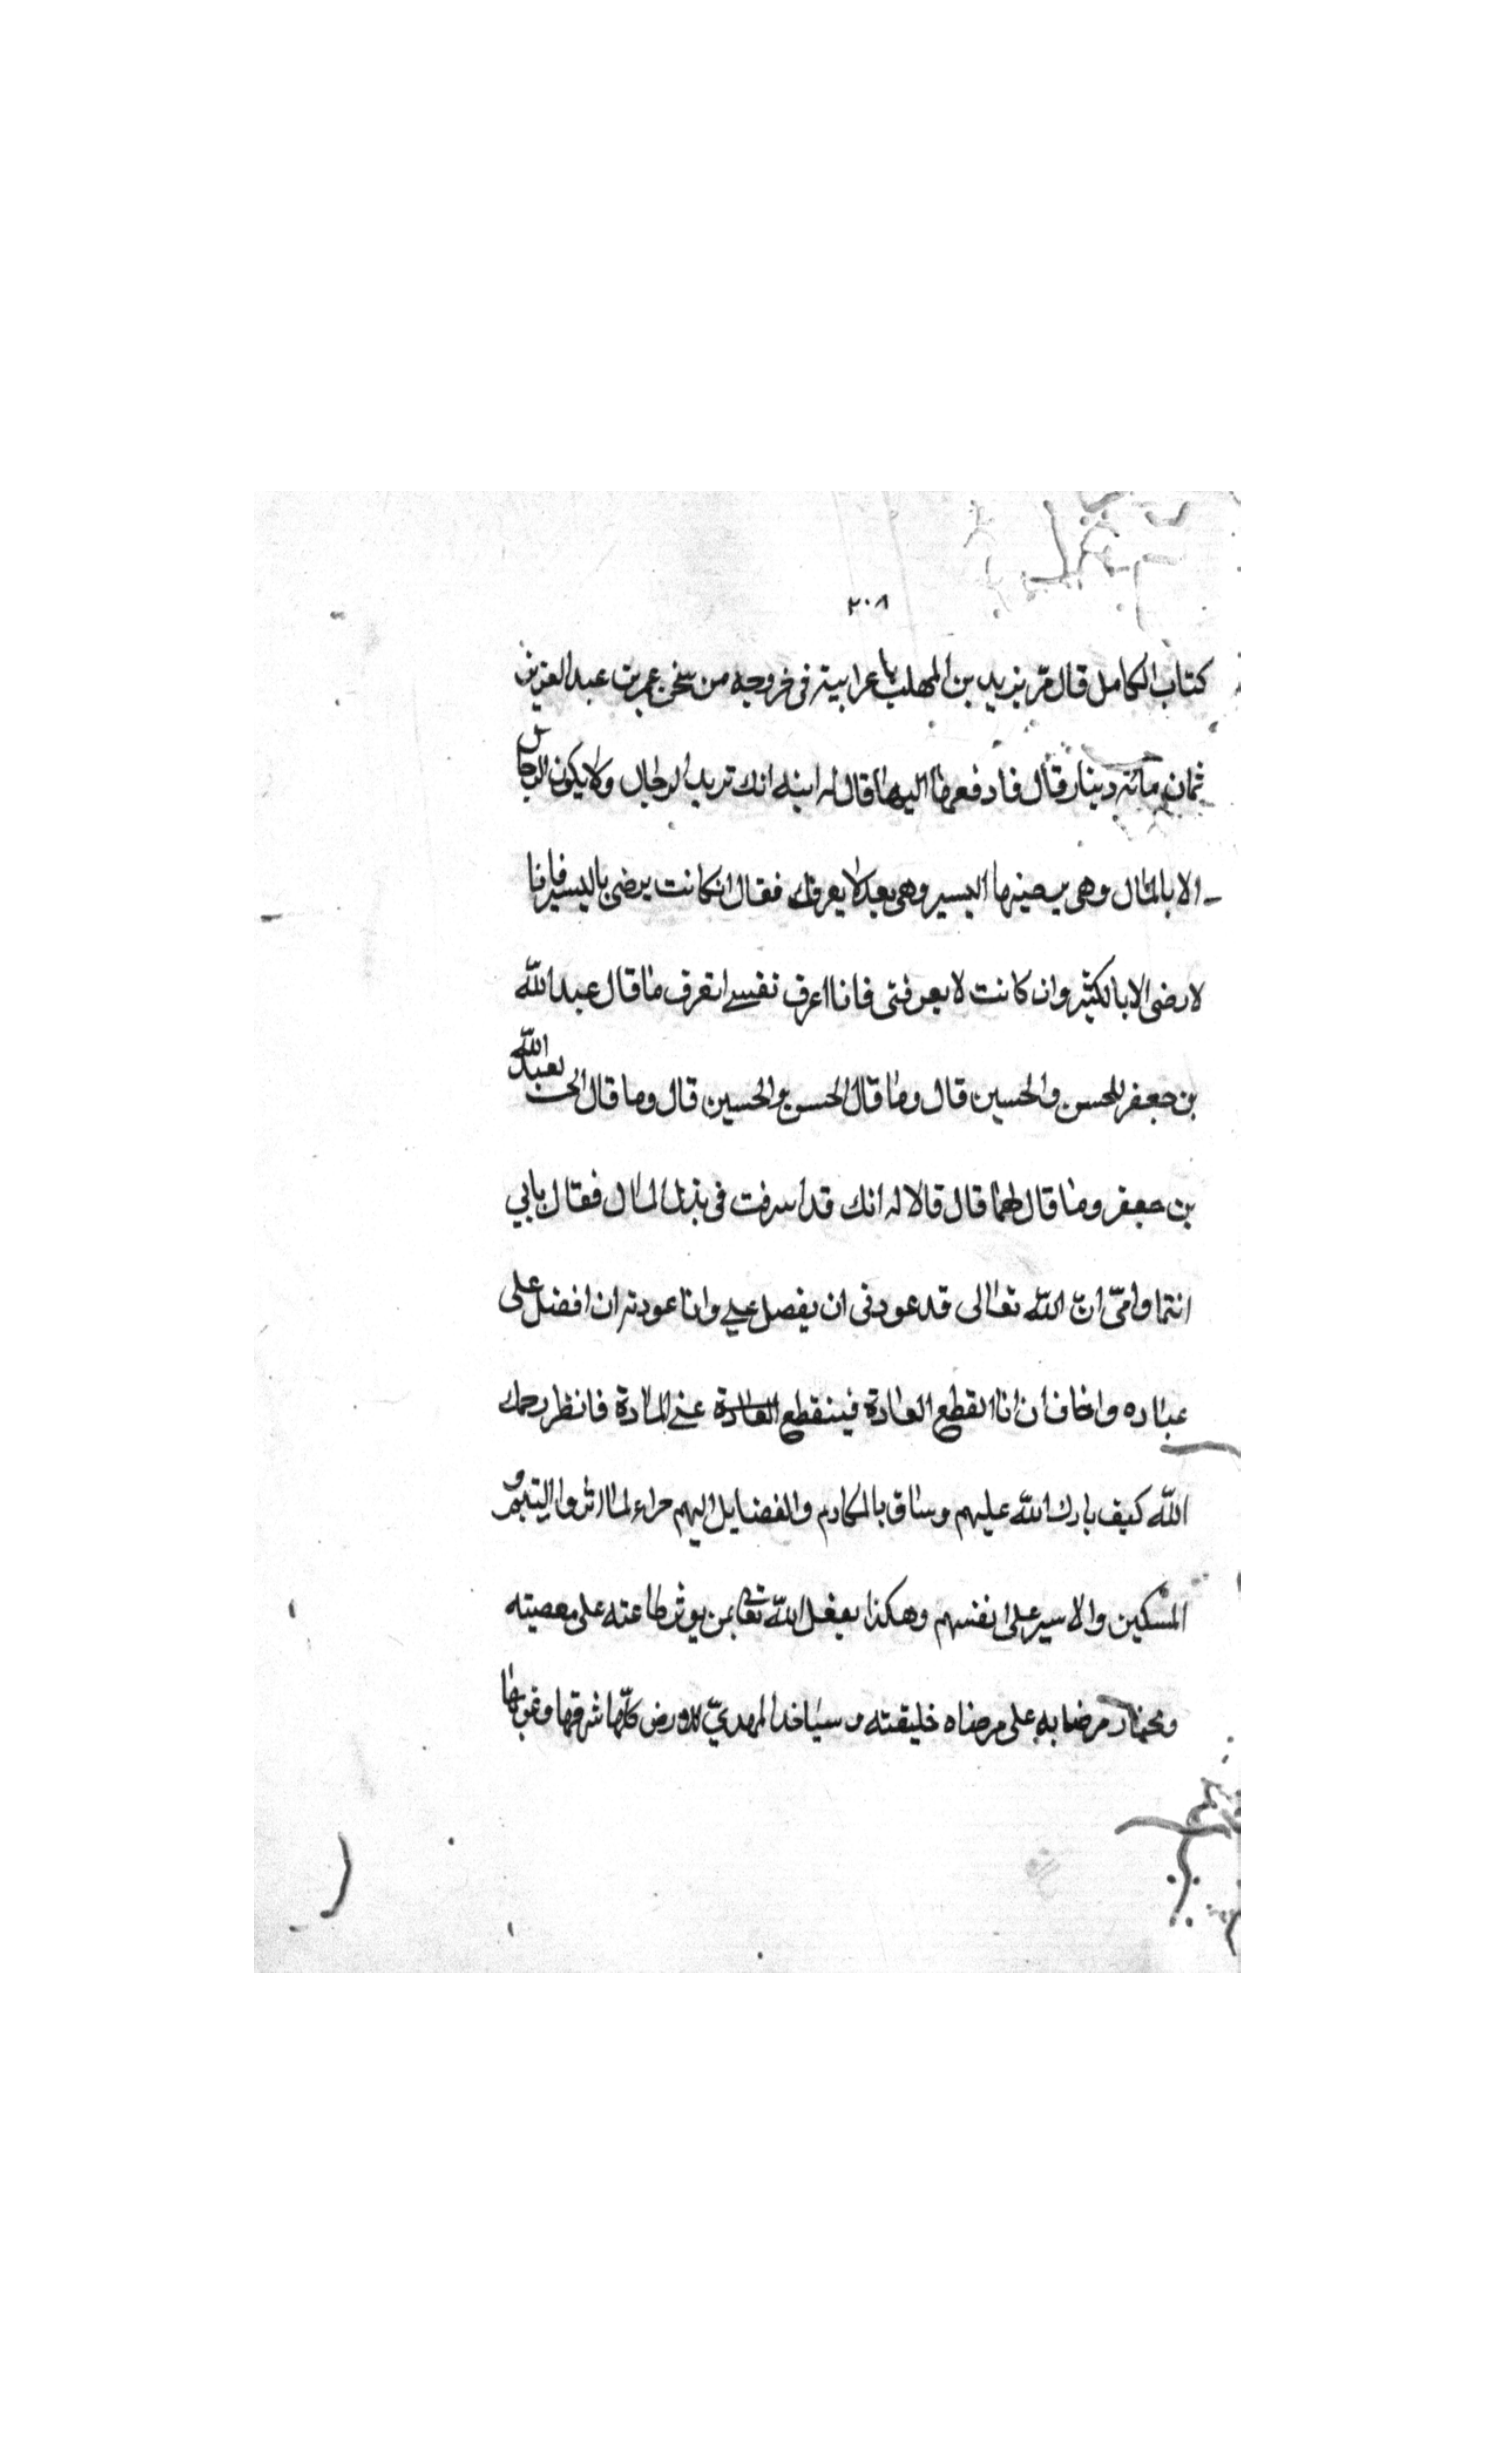 ٢٠٨
كتاب الكامل قال مر يزيد بن المهلب باعرابية فى خروجه من سجن عمر بن عبد العزيز
ثمان مائة دينار وقال فادفعها اليها قال له ابنه انك تريد الرجال ولا يكون الرجال
الا بالمال وهى يرضيها اليسير وهى بعد لا يعرفك فقال ان كانت يرضى باليسير فانا
لا رضى الا بالكثير وان كانت لا يعرفنى فانا اعرف نفسى اتعرف ما قال عبد الله
بن جعفر للحسن والحسين قال وما قال الحسن والحسين قال وما قال الحسن لعبد الله
بن جعفر وما قال لهما قال قالا له انك قد اسرفت فى بذل المال فقال بابي
انتما وامّى انّ اللّه تعالى قد عودنى ان يفضل علي وانا عودته ان افضل على
عباده واخاف ان انا اقطع العادة فينقطع العادة عنى المادة فانظر رحمك
اللّه كيف بارك اللّه عليهم وساق بالمكارم والفضايل اليهم جزاء لما اثروا اليتيم و
المسكين والاسير على انفسهم وهكذا يفعل اللّه تعا بمن يوثر طاعته على معصيته
ويختار مرضا به على مرضاه خليقته سياخذ المهديّ كلّها شرقها وغربها